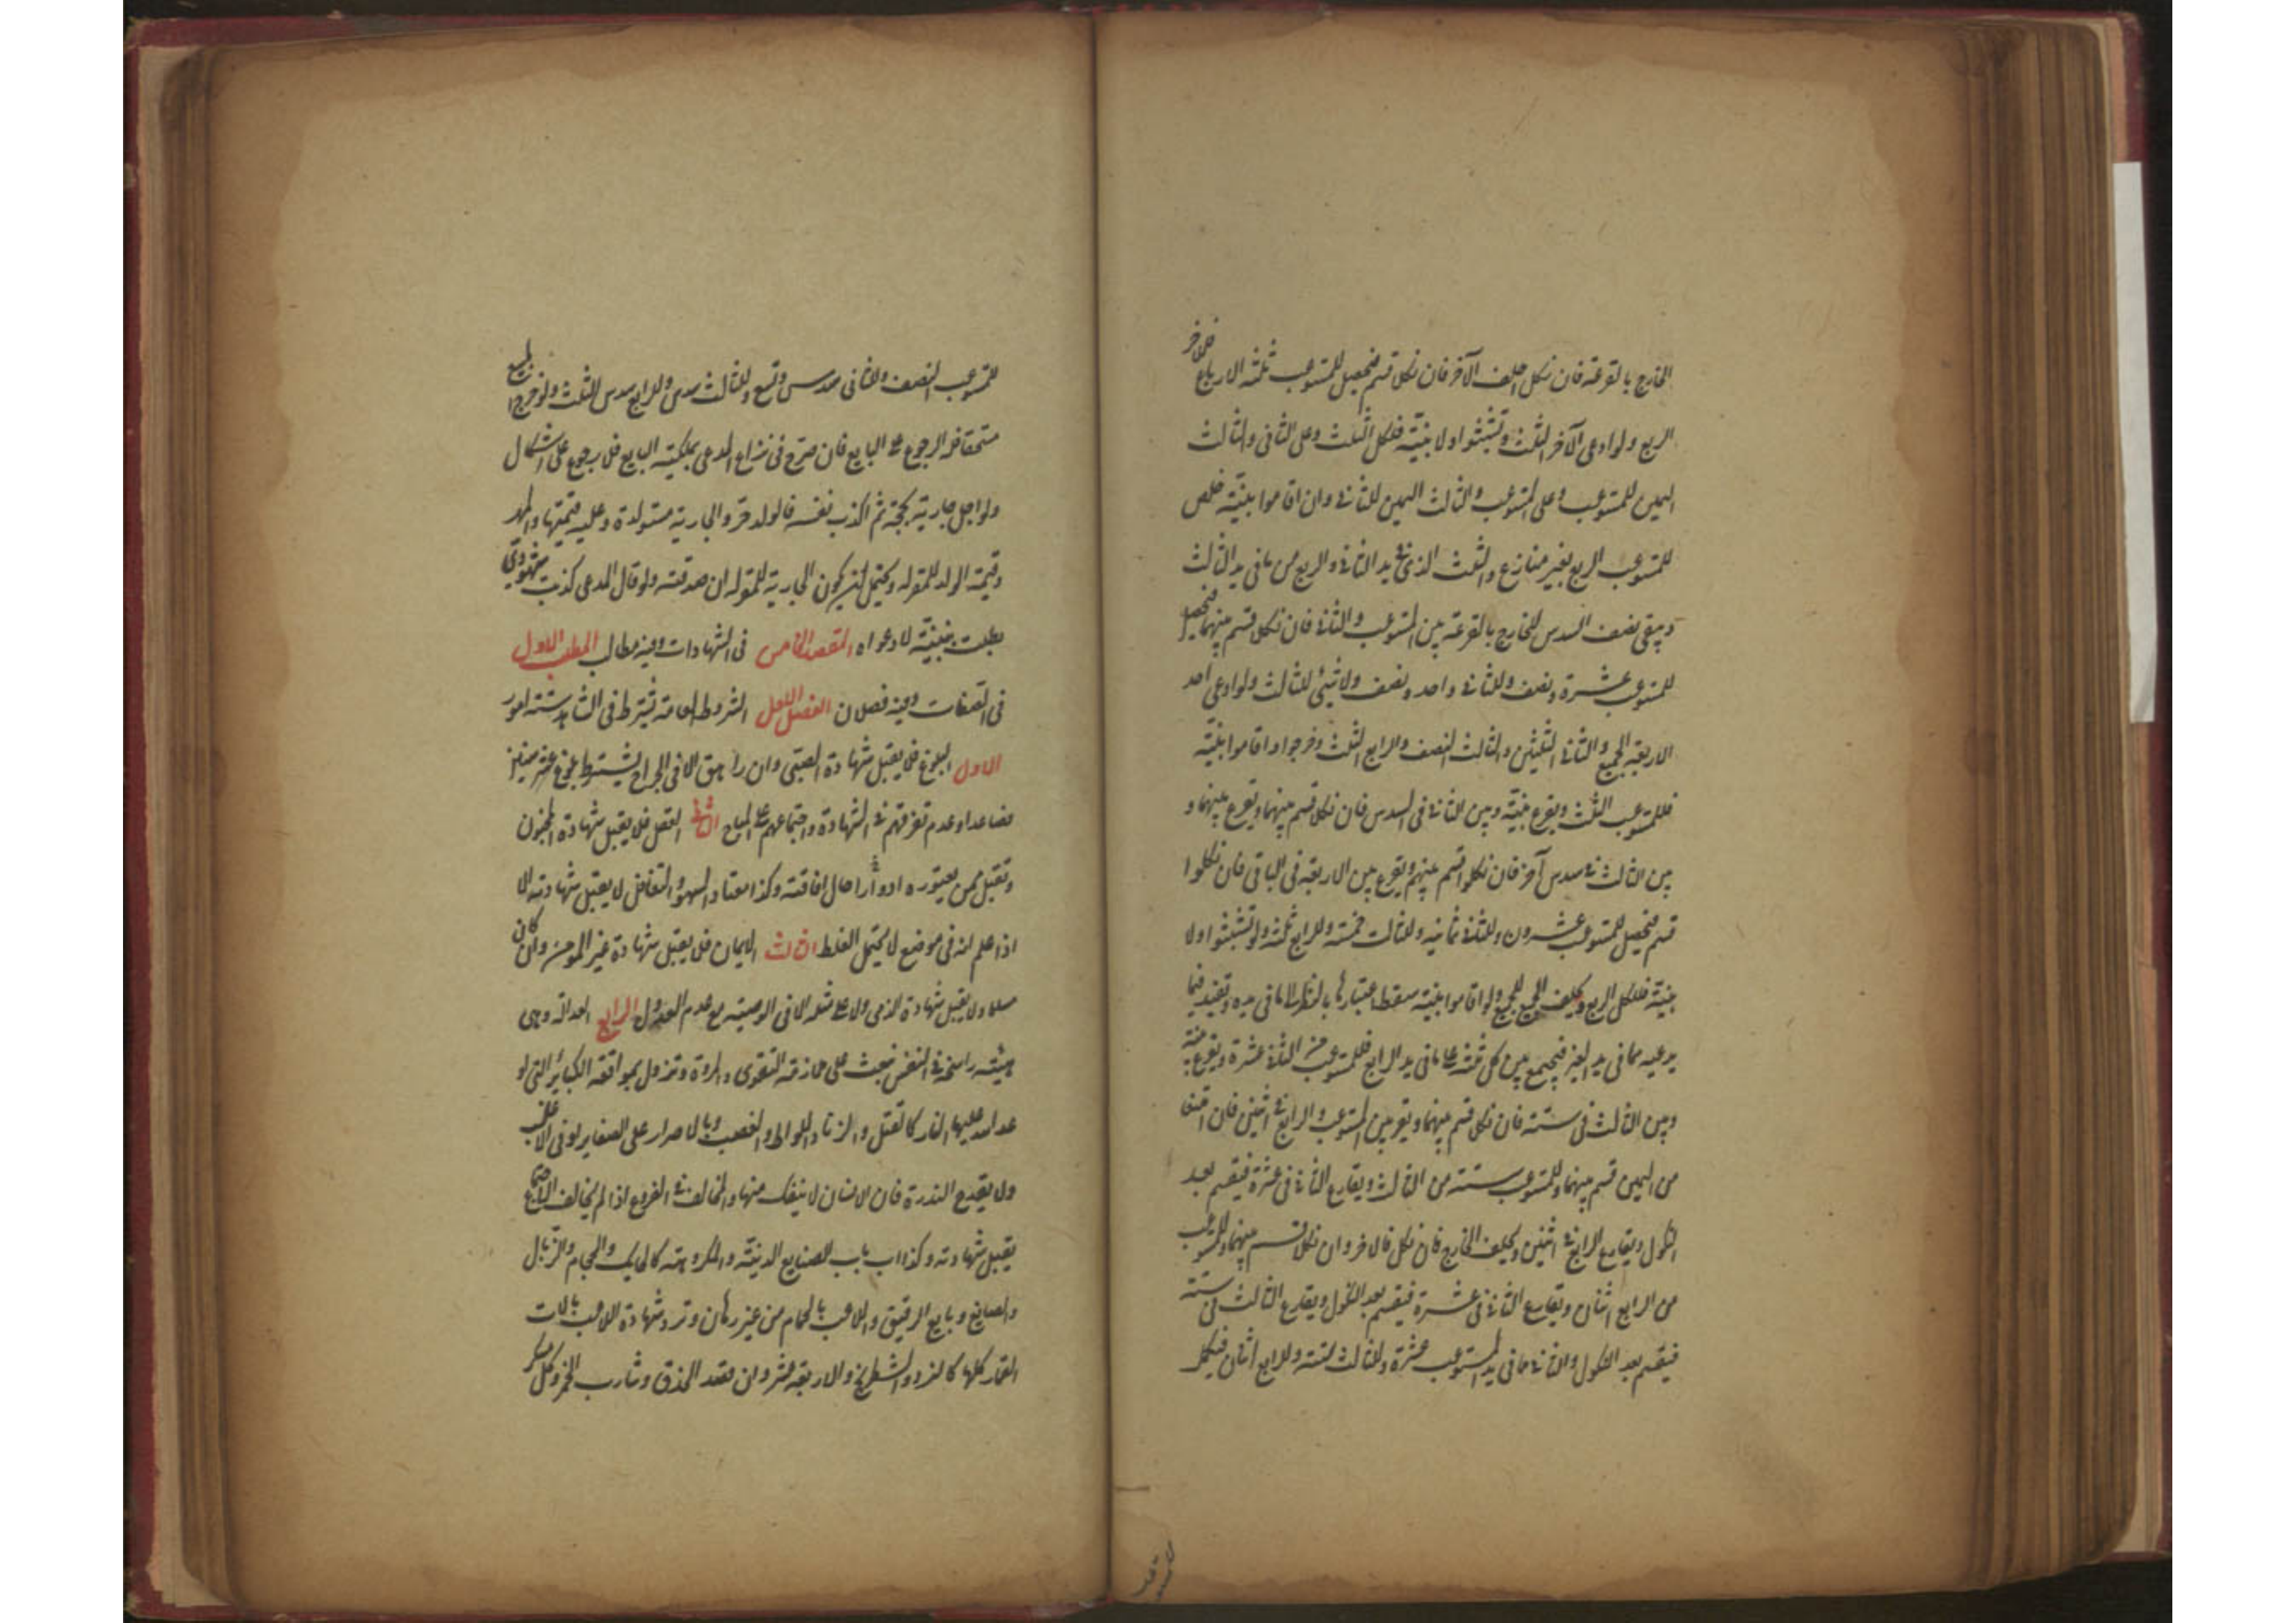 الخارج بالقرعة فان نكل احلف الآخر فان نكل قسم فيحصل للمستوعب ثلثة الارباع وللآخر
الربع ولو ادعى الآخر الثلث وتشبثوا ولا بينة فلكل الثلث وعلى الثانى والثالث
اليمين للمستوعب وعلى المستوعب والثالث اليمين للثانى وان اقاموا بينة خلص
للمستوعب الربع بغير منازع والثلث الذى فى يد الثانى والربع مما فى يد الثالث
ويبقى نصف السدس للخارج بالقرعة بين المستوعب والثانى فان نكلا قسم بينهما فيحصل
للمستوعب عشرة ونصف وللثانى واحد ونصف ولا شئ للثالث ولو ادعى احد
الاربعة الجميع والثانى الثلثين والثالث النصف والرابع الثلث وخرجوا واقاموا بينة
فللمستوعب الثلث ويقرع بينه وبين الثانى فى السدس فان نكلا قسم بينهما ويقرع بينهما و
بين الثالث فى سدس آخر فان نكلوا قسم بينهم ويقرع بين الاربعة فى الباقى فان نكلوا
قسم فيحصل للمستوعب عشرون وللثانى ثمانيه وللثالث خمسة وللرابع ثلثة ولو تشبثوا ولا
بينة فلكل الربع ويحلف الجميع للجميع ولو اقاموا بينة سقط اعتبارها بالنظر الى ما فى يده وتفيد فيما
يدعيه مما فى يد الغير فيجمع بين كل ثلثة على ما فى يد الرابع فللمستوعب من الثانى عشرة ويقرع بينه
وبين الثالث فى ستة فان نكلا قسم بينهما ويقرع بين المستوعب والرابع فى اثنين فان امتنعا
من اليمين قسم بينهما وللمستوعب ستة من الثالث ويقارع الثانى فى عشرة فيقسم بعد
النكول ويقارع الرابع فى اثنين ويحلف الخارج فان نكل فالآخر وان نكلا قسم بينهما وللمستوعب
من الرابع اثنان ويقارع الثانى فى عشرة فيقسم بعد النكول ويقارع الثالث فى ستة
فيقسم بعد النكول والثانى مما فى يد المستوعب عشرة وللثالث ستة وللرابع اثنان فيكمل
للمستوعب النصف وللثانى سدس وتسع وللثالث سدس وللرابع سدس الثلث ولو خرج المبيع
مستحقا فله الرجوع على البايع فان صرح فى نزاع المدعى بملكية البايع فلا رجوع على اشكال
ولو احبل جارية بحجة ثم اكذب نفسه فالولد حر والجارية مستولدة وعليه قيمتها والمهر
وقيمة الولد للمقر له ويحتمل ان يكون الجارية للمقر له ان صدقته ولو قال المدعى كذبت شهودى
بطلت بينته لا دعواه المقصد الخامس فى الشهادات وفيه مطالب المطلب الاول
فى الصفات وفيه فصلان الفصل الاول الشروط العامة تشترط فى الشاهد ستة امور
الاول البلوغ فلا يقبل شهادة الصبى وان راهق الا فى الجراح يشترط بلوغ عشر سنين
فصاعدا وعدم تفرقهم فى الشهادة واجتماعهم على المباح الثانى العقل فلا يقبل شهادة المجنون
وتقبل ممن يعتوره ادوارا حال افاقته وكذا معتاد السهو والتغافل لا يقبل شهادته الا
اذا علم انه فى موضع لا يحتمل الغلط الثالث الايمان فلا يقبل شهادة غير المومن وان كان
مسلما ولا يقبل شهادة الذمى ولا على مثله الا فى الوصية مع عدم العدول الرابع العدالة وهى
هيئة راسخة فى النفس تبعث على ملازمة التقوى والمروة وتزول بمواقعة الكبائر التى او
عد الله عليها النار كالقتل والزنا واللواط والغصب وبالاصرار على الصغاير او فى الاغلب
ولا يقدح الندرة فان الانسان لا ينفك منها والمخالف فى الفروع اذا لم يخالف الاجماع
يقبل شهادته وكذا ارباب الصنايع الدنية والمكروهة كالحايك والحجام والزبال
والصايغ وبايع الرقيق واللاعب بالحمام من غير رهان وترد شهادة اللاعب بالات
القمار كلها كالنرد والشطرنج والاربعة عشر وان قصد الحذق وشارب الخمر وكل مسكر